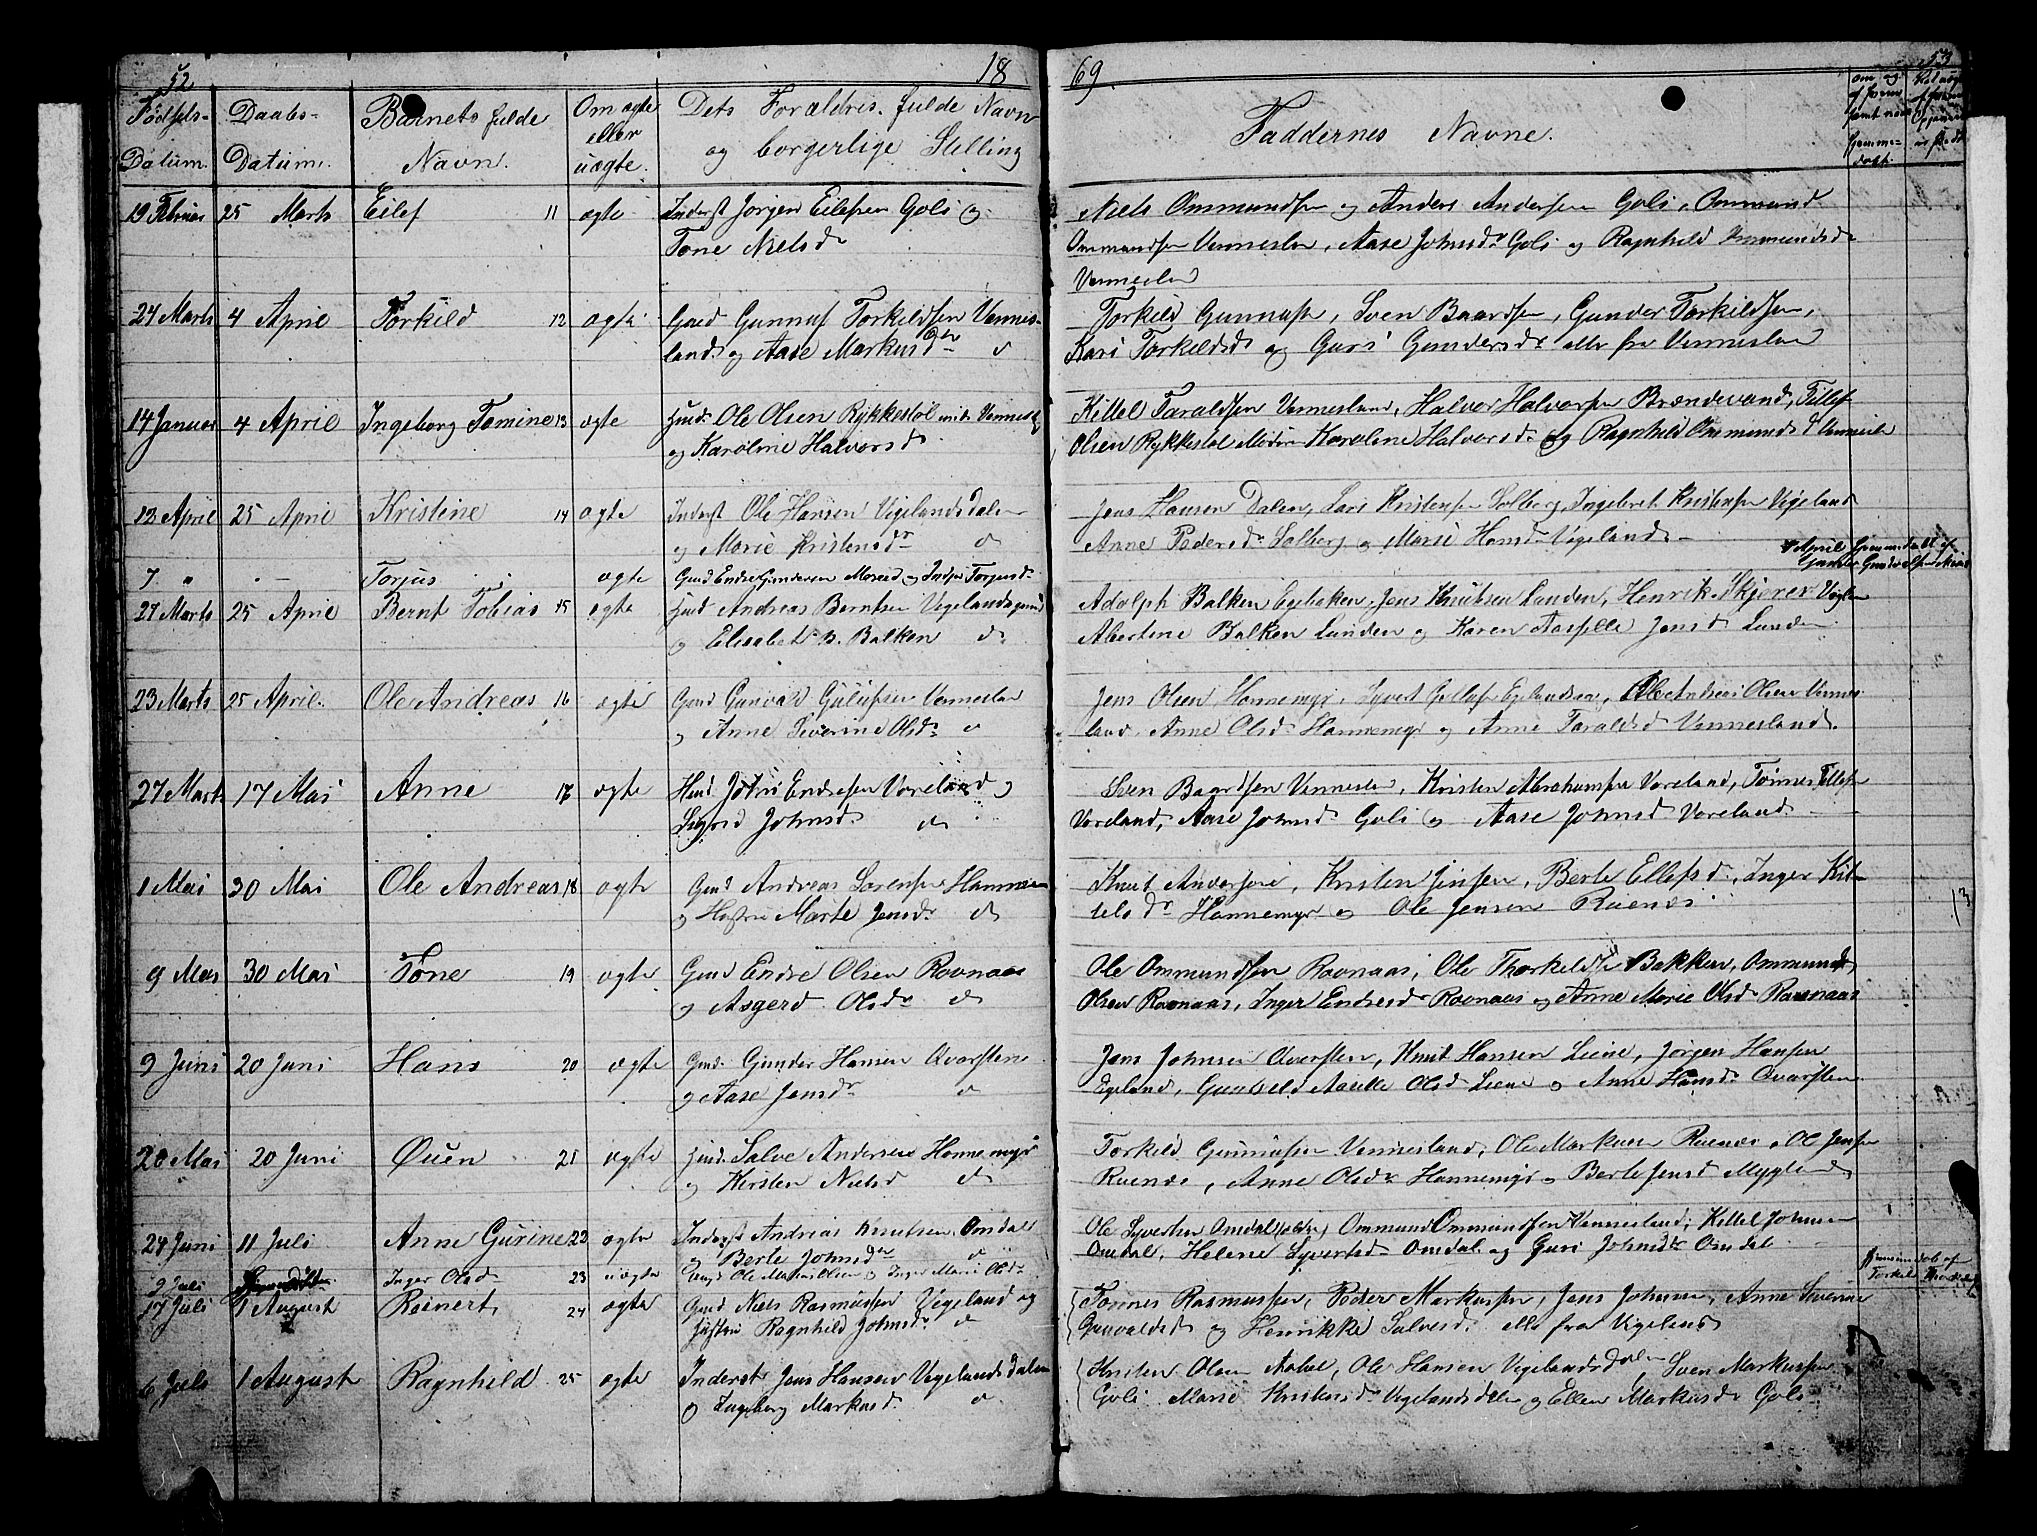 52
18
69.
53
Fødsels-
Datum.
Daabs-
Datum.
Barnets fulde
Navn.
Om ægte
eller
uægte.
Dets Forældres fulde Navn
og borgerlige Stilling
Faddernes Navne.
19 Februar 25 Marts Eilef 11 ægte Inderst Jørgen Eilefsen Goli og
Tone Nielsdr
Niels Ommundsen og Anders Andersen Goli, Ommund
Ommundsen Vennesla, Aase Johnsdr Goli og Ragnhild Ommundsdr
Vennesla
24 Marts 4 April Torkild 12 ægte Gmd Gunnuf Torkildsen Vennes-
land og Aase Markusdr
Torkild Gunnufsen, Sven Baardsen, Gunder Torkildsen,
Kari Torkildsd og Guri Gundersdr alle fra Vennesla
14 Januar 4 April Ingeborg Tomine 13 ægte Husm. Ole Olsen Rykkestøl Vennesl
og Karoline Halvorsd
Kittel Taraldsen Vennesland, Halvor Halvorsen Brændevand, Tellef
Olsen Rykkestøl Moderen Karoline Halvorsd. og Ragnhild Ommundsd Vennesla
12 April 25 April Kristine 14 ægte Inderst Ole Hansen Vigelandsdalen
og Marie Kristensdr
Jens Hansen Dalen, Lars Kristensen Solberg, Ingebret Kristensen Vigeland
Anne Pedersdr Solberg og Marie Hansd Vigeland
7 " - Torjus ægte Gmd Endre Gundersen
27 Marts 25 April Bernt Tobias 15 ægte Husm Andreas Berntsen Vigeland
og Elisabet B. Balken
Adolph Balken, Jens Knutsen Lunden, Henrik Skjerer
Abertine Balken Lunden og Karen Jensd Lunden
23 Marts 25 April. Ole Andreas 16 ægte Gmd Gunvald Vennesla
og Anne Severine Olsdr
Jens Olsen Honnemyr, Ole Andreas Olsen Vennes-
land, Anne Olsdr Honnemyr og Anne Taraldsd Vennesland.
27 Marts 17 Mai Anne 17 ægte Endresen Voreland og
Sigrid Johnsd
Sven Baardsen Vennesla, Kristen Abrahamsen Voreland, Tønnes Tellefsen
Voreland, Aase Johnsd Goli og Aase Johnsd Voreland
1 Mai 30 Mai Ole Andreas 18 ægte Gmd Andreas Sørensen Honnemyr
og Hustru Marte Jensdr
Knut Andersen, Kristen Jensen, Berte Ellefsd, Inger Kit-
telsdr Honnemyr og Ole Jensen Ruenes
9 Mai 30 Mai Tone 19 ægte Gmd Endre Olsen Ravnaas
og Asgerd Olsdr
Ole Ommundsen Ravnaas, Ole Thorkildsen Bakken, Ommund
Olsen Ravnaas, Inger Endresd Ravnaas og Anne Marie Olsd Ravnaas
9 Juni 20 Juni Hans 20 ægte Gmd. Gunder Hansen Qvarsten
og Aase Jensdr
Jens Johnsen Qvarsten, Knut Hansen Liene, Jørgen Hansen
Egeland, Gunhild Olsd Liene og Anne Hansdr Qvarsten
20 Mai 20 Juni Øuen 21 ægte Husm. Salve Andersen Honnemyr
og Kirsten Nielsd
Torkild Gunnufsen Vennesland, Ole Markusen Ruenes, Ole Jensen
Ruenes, Anne Olsdr Honnemyr og Berte Jensd Mygland
24 Juni 11 Juli Anne Gurine 22 ægte Inderst Andreas Knutsen Omdal
og Berte Johnsdr
Ole Syvertsen Omdal (ældre) Ommund Ommundsen Vennesland, Kittel Johnsen
Omdal, Helene Syvertsdr Omdal og Guri Johnsdr Omdal
9 Juli Inger Olsd 23 uægte
17 Juli 1 August Reinert 24 ægte Gmd Niels Rasmussen Vigeland og
Hustru Ragnhild Johnsdr
Tønnes Rasmussen, Peder Markussen, Jens Johnsen, Anne Severine
Gunvaldsd og Henrikke Salvesd. alle fra Vigeland
6 Juli 1 August Ragnhild 25 ægte Inderst Jens Hansen Vigelandsdalen
og Ingeborg Markusd.
Kristen Olsen, Ole Hansen Vigelandsdalen, Sven Markussen
Goli. Marie Kristensdr Vigelandsdalen og Ellen Markusdr Goli